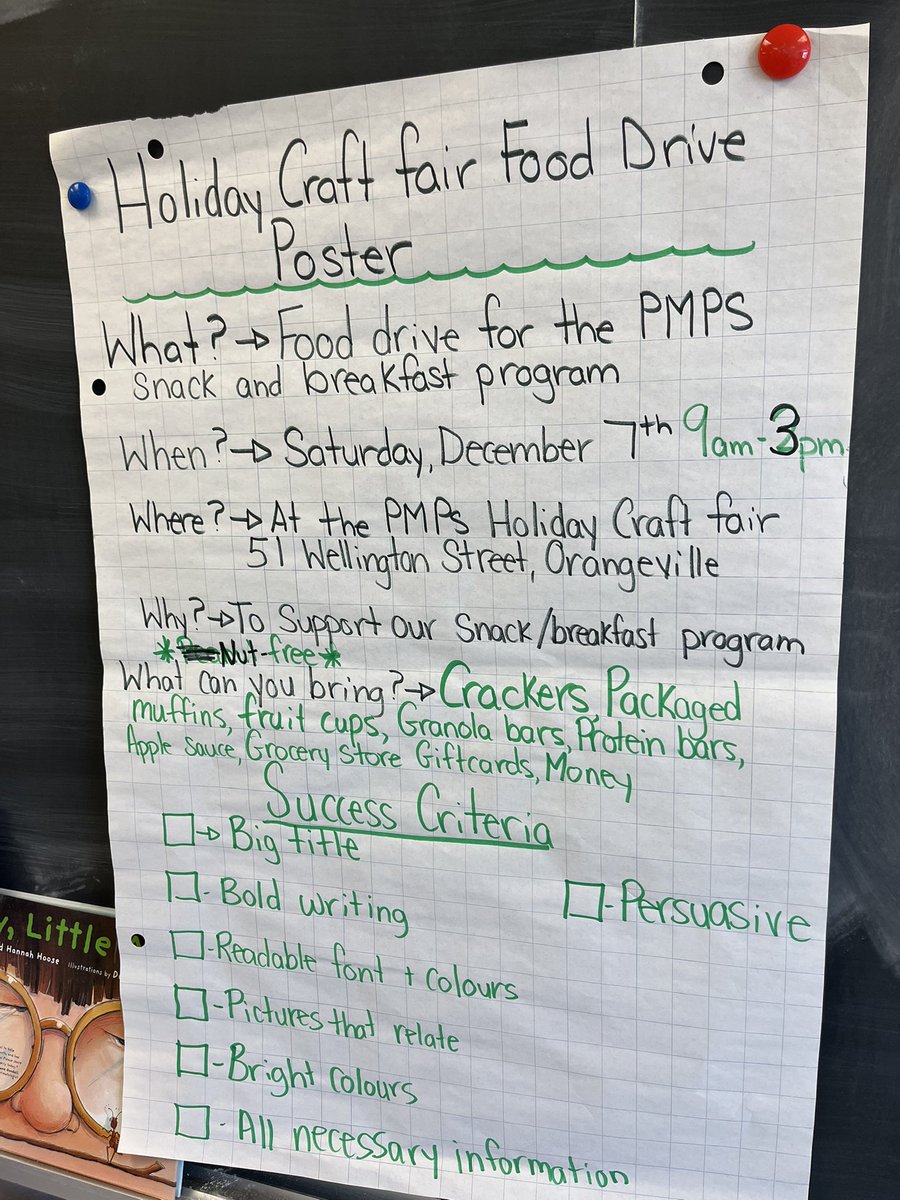 Holiday Craft fair Food Drive
Poster
What? → Food drive for the PMPS
snack and breakfast program
When? → Saturday, December 7th 9am-3pm
Where? → At the PMPS Holiday Craft fair
51 Wellington Street, Orangeville
Why? → To Support our Snack/breakfast program
*Nut-free*
What can you bring? → Crackers, Packaged
muffins, fruit cups, Granola bars, Protein bars,
Apple Sauce, Grocery store Giftcards, Money
Success Criteria
→ Big title
- Bold writing
- Persuasive
- Readable font + colours
- Pictures that relate
- Bright colours
- All necessary information
, Little
Hannah Hoose
Illustrations by D